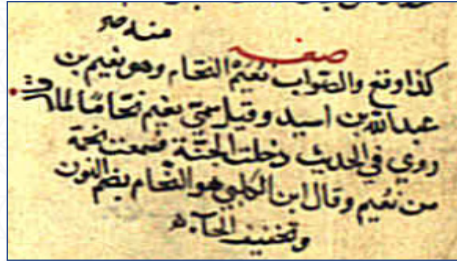 منه صح
صفـ
كذا وقع والصواب نعيم النحام وهو نعيم بن
عبدالله بن اسيد وقيل سمي نعيم نحامًا لما
روي في الحديث دخلت الجنة فسمعت نحمة
من نعيم وقال ابن الكلبي هو النحام بضم النون
وتخفيف الحاء